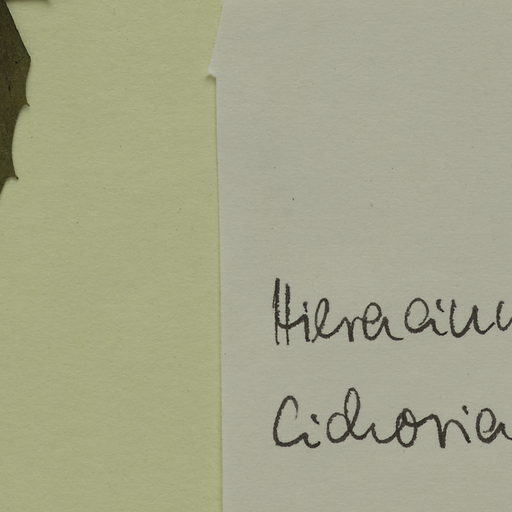 Hieraciu
Cichoria